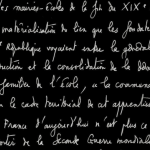 les mairies-école de la fin du XIXe
matérialisation du lien que les fondate
République voyaient entre la générali
truction et la consolidation de la démo
fenêtre de l'école, a la commune
le cadre territorial de cet apprentis
France d'aujourd'hui n'est plus ce
de la Seconde Guerre mondiale